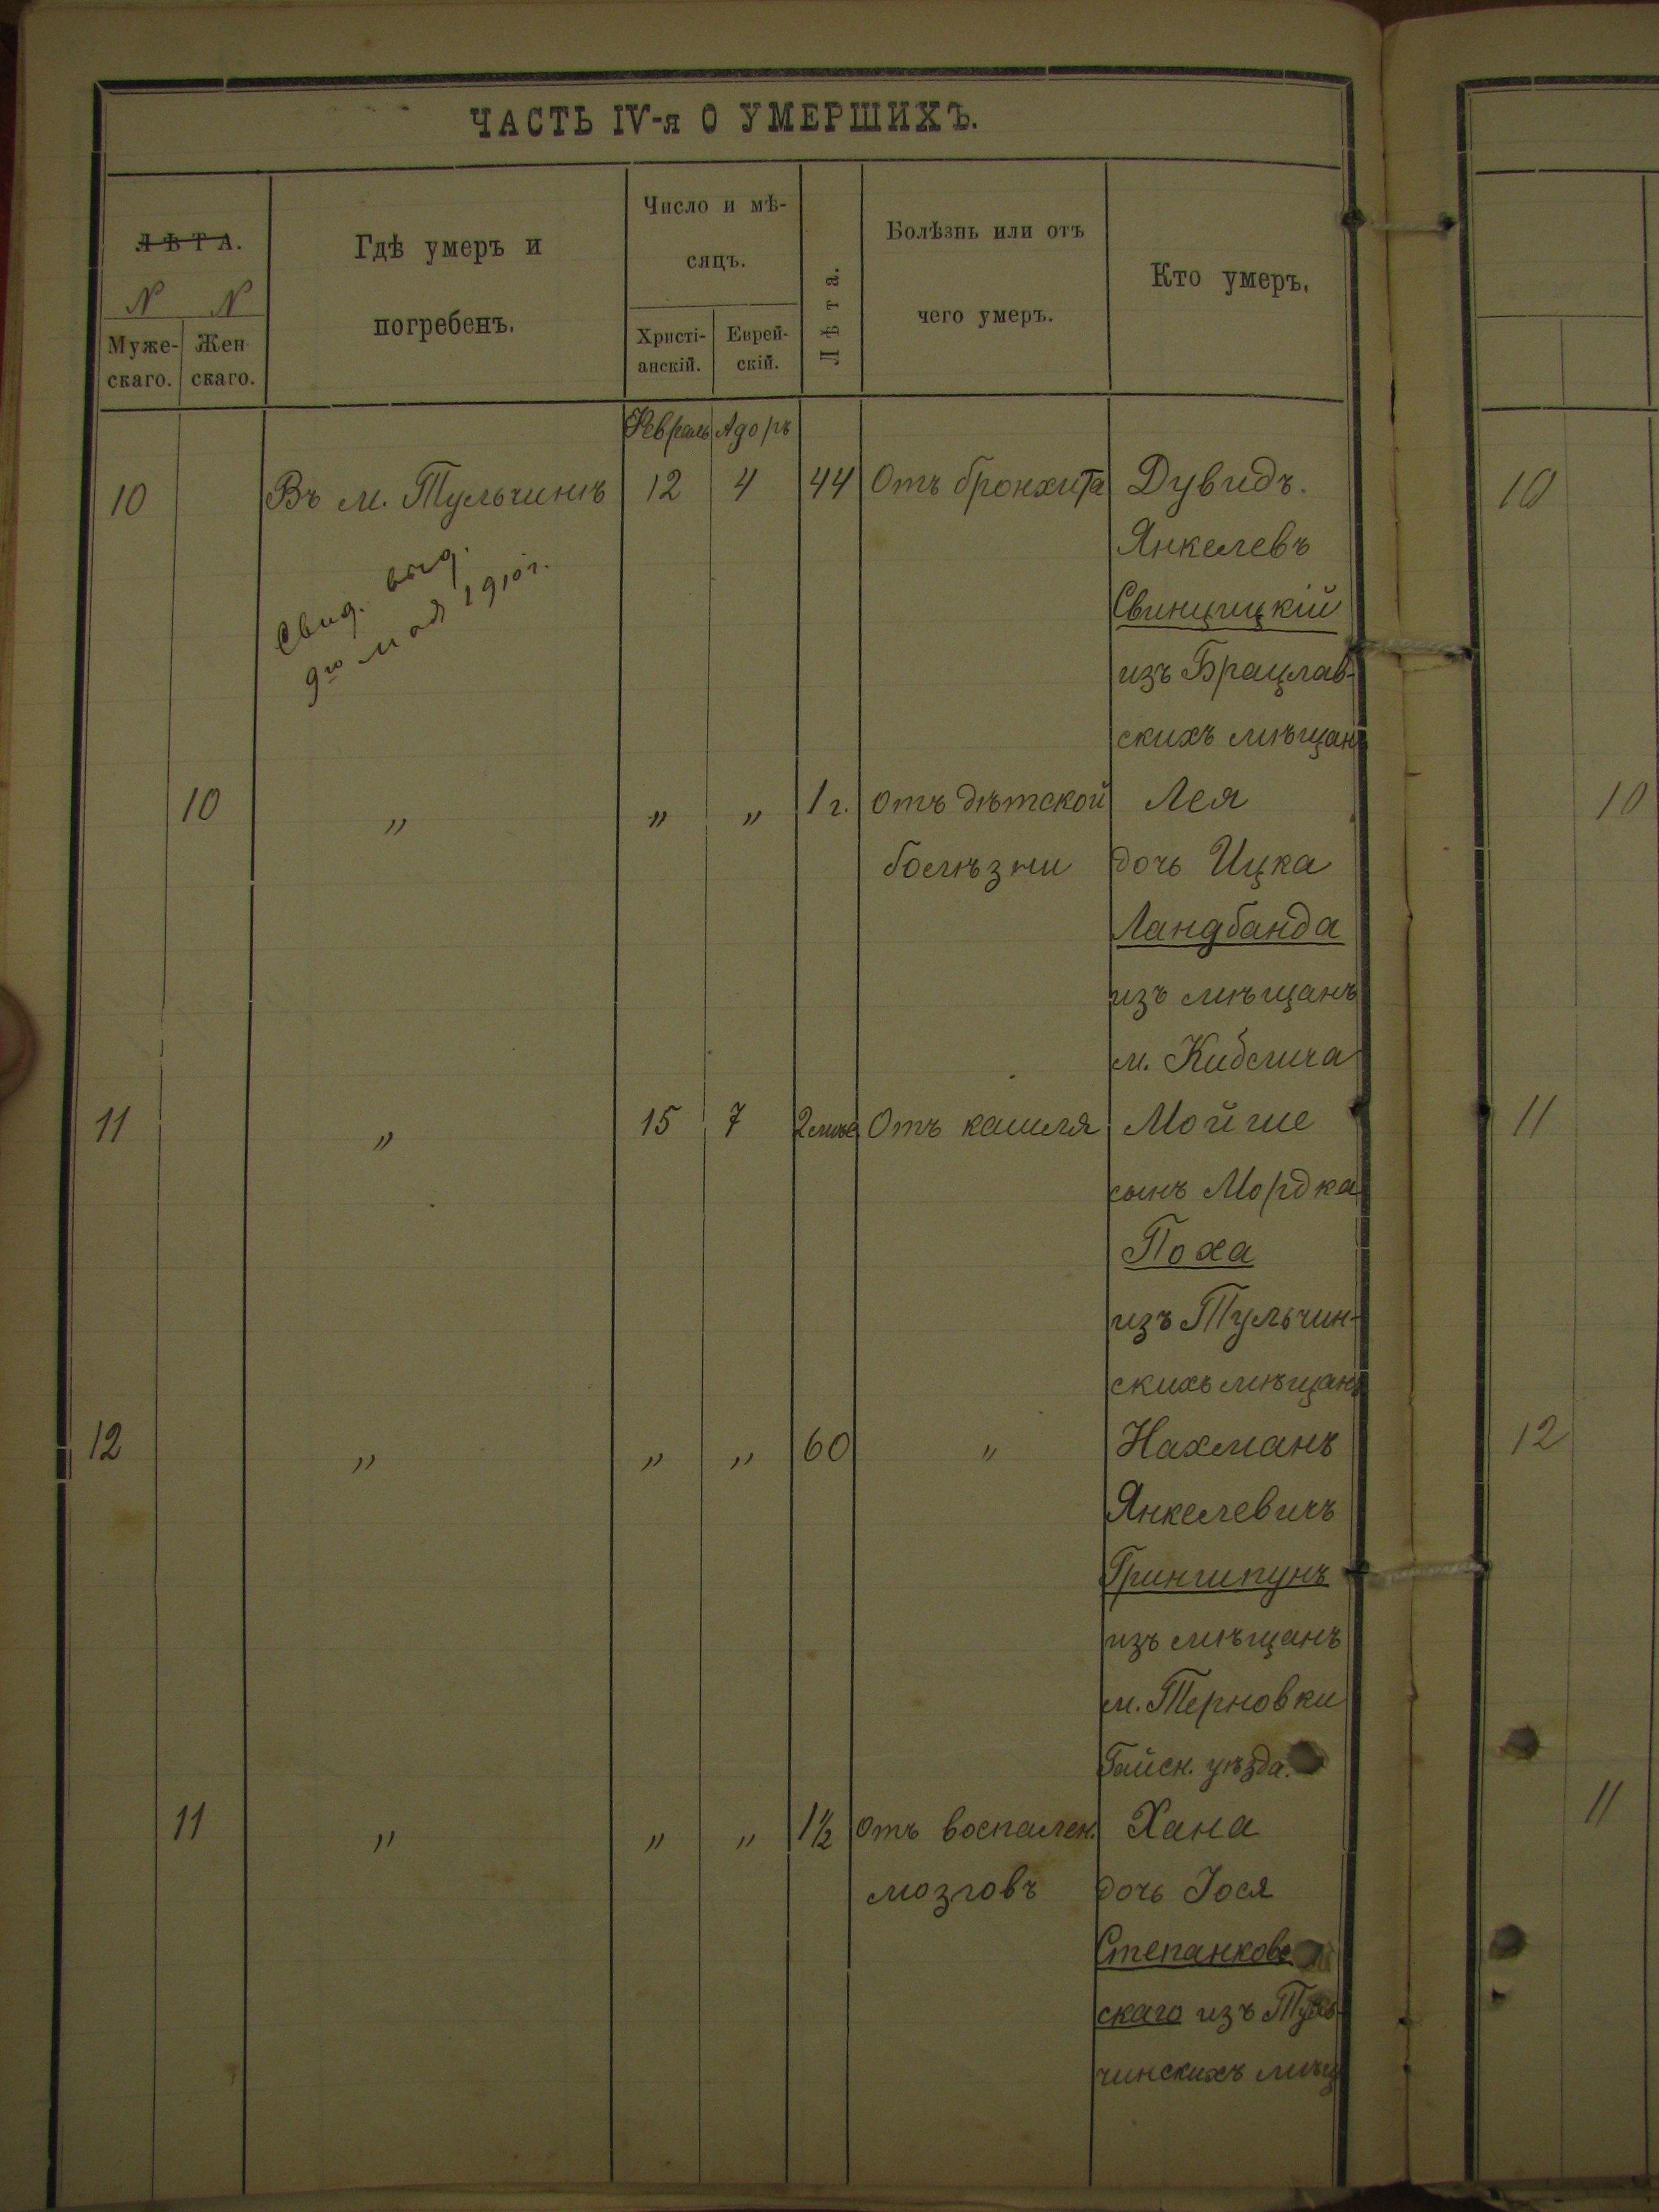 ЧАСТЬ IV-я О УМЕРШИХЪ.
ЛѢТА.
N N
Муже-
скаго.
Жен
скаго.
Гдѣ умеръ и
погребенъ.
Число и мѣ-
сяцъ.
Христі-
анскій.
Еврей-
скій.
Лѣта.
Болѣзнь или отъ
чего умеръ.
Кто умеръ.
Февраль Адоръ
10 Въ м. Тульчинѣ 12 4 44 Отъ бронхита Дувидъ. 10
Янкелевъ
Свид. выд.
9го мая 1910 г.
Свинцицкій
изъ Брацлав-
скихъ мѣщанъ
10 " " " 1 г. отъ дѣтской Лея 10
болѣзни дочь Ицка
Ландбанда
изъ мѣщанъ
м. Киблича
11 " 15 7 2 мѣс Отъ кашля Мойше 11
сынъ Мордка
Поха
изъ Тульчин-
скихъ мѣщанъ
12 " " " 60 " Нахманъ 12
Янкелевичъ
Гриншпунъ
изъ мѣщанъ
м. Терновки
Гайсн. уѣзда.
11 " " " 1½ отъ воспален. Хана 11
мозговъ дочь Іося
Степанков
скаго изъ Туль-
чинскихъ мѣщ